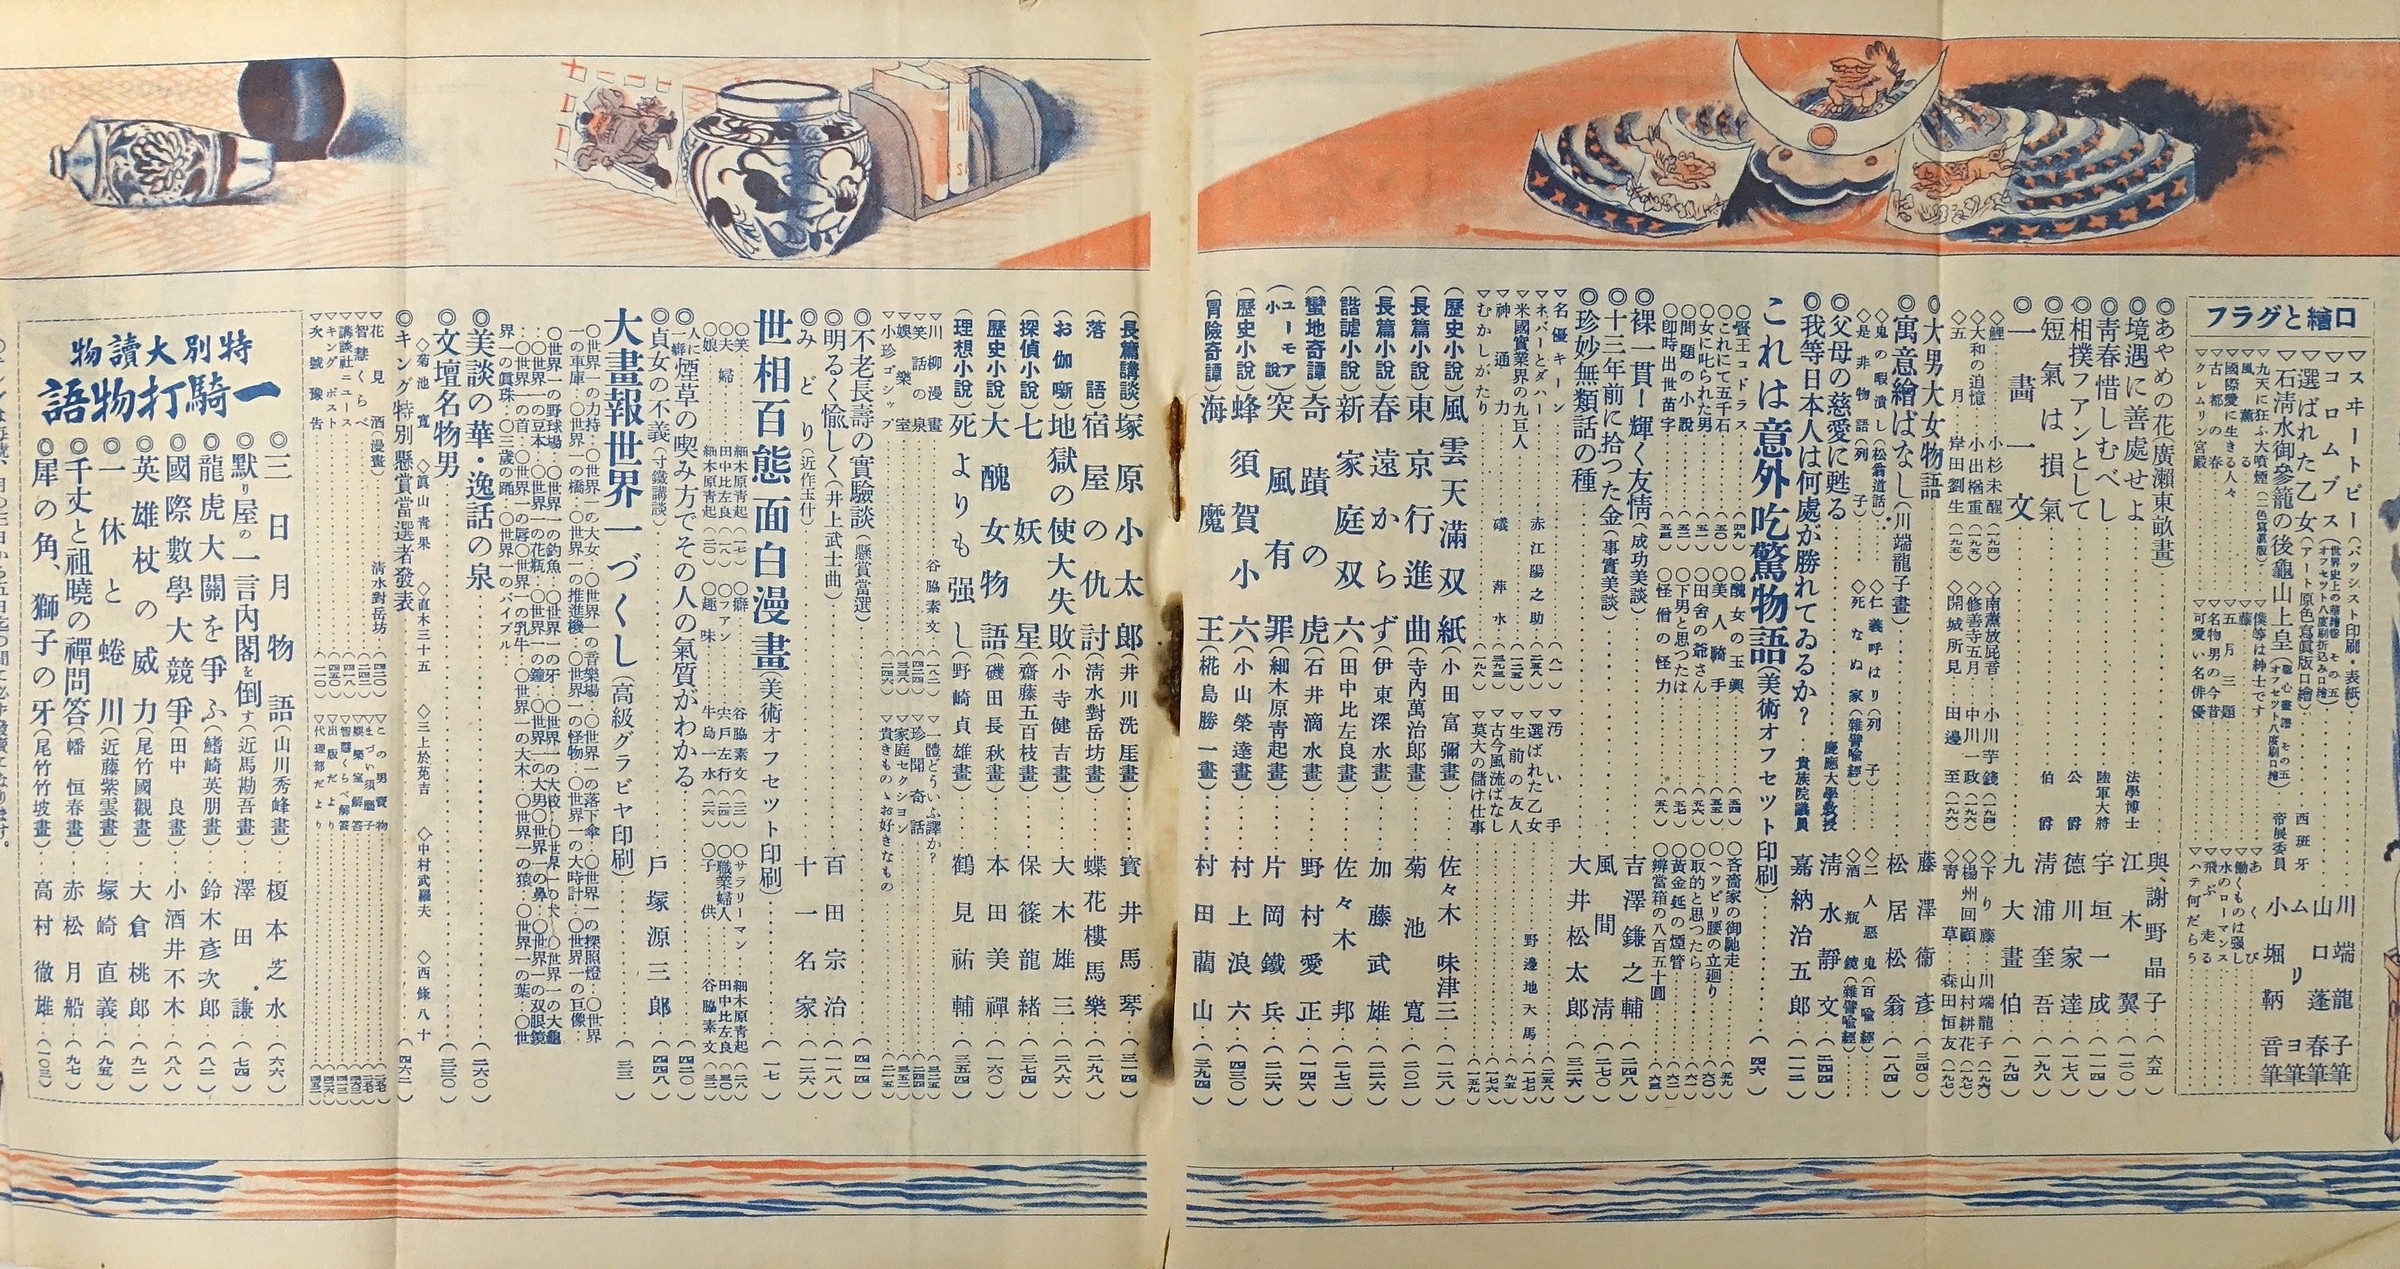 口繪とグラフ
▽スヰートピー(バツシスト印刷・表紙)‥‥川端龍子筆
▽コロムブス‥‥西班牙 ムリヨ筆
▽選ばれた乙女(アート原色寫眞版口繪)‥‥山口蓬春筆
▽石清水御參籠の後龜山上皇‥‥帝展委員 小堀鞆音筆
▽九天に狂ふ大噴煙(二色寫眞版)
▽風薫る
▽國際愛に生きる人々
▽古都の春
▽クレムリン宮殿
▽僕等は紳士です
▽藤
▽五月三題
▽名物男の今昔
▽可愛い名俳優
▽あくび
▽働くものは强し
▽水のローマンス
▽飛ぶ走る
▽ハテ何だらう
◎あやめの花(廣瀬東畝畫)‥‥與謝野晶子(六五)
◎境遇に善處せよ‥‥法學博士 江木翼(一二〇)
◎靑春惜しむべし‥‥陸軍大將 宇垣一成(一一四)
◎相撲フアンとして‥‥公爵 德川家達(一七八)
◎短氣は損氣‥‥伯爵 淸浦奎吾(一九八)
◎一畫一文‥‥九大畫伯(一九四)
◇鯉‥‥小杉未醒(一九四)
◇大和の追憶 小出楢重(一九五)
◇五月 岸田劉生(一九五)
◇南瀛放屁音‥小川芋錢(一九四)
◇修善寺五月‥中川一政(一九六)
◇開城所見‥田邊至(一九六)
◇下り藤‥川端龍子(一九六)
◇楊州回顧‥山村耕花(一九七)
◇靑草‥森田恒友(一九七)
◎大男大女物語‥‥藤澤衞彥(三四〇)
◎寓意繪ばなし(川端龍子畫)‥‥松居松翁(一八四)
◇鬼の暇潰し(松翁道話)
◇是非物語(列子)
◇仁義呼はり(列子)
◇死なぬ家(雜譬喩經)
◇二人惡鬼(百喩經)
◇酒瓶鏡(雜譬喩經)
◎父母の慈愛に甦る‥‥慶應大學敎授 淸水靜文(二四四)
◎我等日本人は何處が勝れてゐるか?‥‥貴族院議員 嘉納治五郎(一一二)
これは意外吃驚物語(美術オフセツト印刷)‥‥(四六)
○賢王コドラス(四九)
○これにて五千石(五〇)
○女に叱られた男(五一)
○問題の小說(五三)
○卽時出世苗字(五三)
○醜女の玉輿(五四)
○美人騎手(五五)
○田舍の爺さん(五六)
○下男と思つたは(五七)
○怪僧の怪力(五八)
○吝嗇家の御馳走(五九)
○ヘツピリ腰の立廻り(六〇)
○取的と思つたら(六一)
○黃金延の煙管(六二)
○辨當箱の八百五十圓(六三)
◎裸一貫!輝く友情(成功美談)‥‥吉澤鎌之輔(二四八)
◎十三年前に拾つた金(事實美談)‥‥風間淸(二七〇)
◎珍妙無類話の種‥‥大井松太郎(三二六)
▽名優キーン
▽ネバーとダハー‥‥赤江陽之助
▽米國實業界の九巨人
▽神通力‥‥礒萍水
▽むかしがたり
▽汚い手
▽選ばれた乙女‥‥野邊地天馬
▽生前の友人
▽古今風流ばなし
▽莫大の儲け仕事
(歷史小說)風雲天滿双紙(小田富彌畫)‥‥佐々木味津三(一二八)
(長篇小說)東京行進曲(寺內萬治郎畫)‥‥菊池寬(二〇二)
(長篇小說)春遠からず(伊東深水畫)‥‥加藤武雄(二二六)
(諧謔小說)新家庭双六(田中比左良畫)‥‥佐々木邦(二七二)
(蠻地奇譚)奇蹟の虎(石井滴水畫)‥‥野村愛正(一四六)
(ユーモア小說)突風有罪(細木原靑起畫)‥‥片岡鐵兵(二二六)
(歷史小說)蜂須賀小六(小山榮達畫)‥‥村上浪六(四三〇)
(冒險奇譚)海魔王(椛島勝一畫)‥‥村田藺山(三九四)
(長篇講談)塚原小太郎(井川洗厓畫)‥‥寶井馬琴(三一四)
(落語)宿屋の仇討(淸水對岳坊畫)‥‥蝶花樓馬樂(二九八)
(お伽噺)地獄の使大失敗(小寺健吉畫)‥‥大木雄三(二八六)
(探偵小說)七妖星(齋藤五百枝畫)‥‥保篠龍緖(三七四)
(歷史小說)大醜女物語(磯田長秋畫)‥‥本田美禪(一六〇)
(理想小說)死よりも强し(野崎貞雄畫)‥‥鶴見祐輔(三五四)
▽川柳漫畫‥‥谷脇素文(一八二)
▽笑話の泉
▽娛樂室
▽小珍ゴシツプ
▽一體どういふ譯か?
▽珍聞奇話
▽家庭セクシヨン
▽貴きもの、お好きなもの
◎不老長壽の實驗談(懸賞當選)‥‥(四一四)
◎明るく愉しく(井上武士曲)‥‥百田宗治(一一八)
◎みどり(近作玉什)‥‥十一名家(一二六)
世相百態面白漫畫(美術オフセツト印刷)‥‥(一七)
○笑‥‥細木原靑起(一七)
○夫婦‥‥田中比左良(一八)
○娘‥‥細木原靑起(二〇)
○癖‥‥谷脇素文(二二)
○フアン‥‥宍戶左行(二四)
○趣味‥‥牛島一水(二六)
○サラリーマン‥‥細木原靑起(二八)
○職業婦人‥‥田中比左良(三〇)
○子供‥‥谷脇素文(三二)
◎人に一癖煙草の喫み方でその人の氣質がわかる‥‥(四二〇)
◎貞女の不義(寸鐵講談)‥‥戶塚源三郎(四四八)
大畫報世界一づくし(高級グラビヤ印刷)‥‥(三三)
○世界一の力持‥○世界一の大女‥○世界一の音樂場‥○世界一の落下傘‥○世界一の探照燈‥○世界一の車庫‥○世界一の橋‥○世界一の推進機‥○世界一の怪物‥○世界一の大時計‥○世界一の巨像‥
○世界一の野球場‥○世界一の釣魚‥○世界一の牙‥○世界一の大綾‥○世界一の犬‥○世界一の大龜‥
○世界一の豆本‥○世界一の花瓶‥○世界一の鐘‥○世界一の大男○世界一の鼻‥○世界一の双眼鏡
○世界一の首‥○世界一の脣○世界一の乳牛‥○世界一の大木‥○世界一の猿‥○世界一の葉‥○世界一の眞珠‥○三歲の踊‥○世界一のバイブル‥
◎美談の華・逸話の泉‥‥(二六〇)
◎文壇名物男‥‥(三三〇)
◇菊池寬 ◇眞山靑果 ◇直木三十五 ◇三上於菟吉 ◇中村武羅夫 ◇西條八十
◎キング特別懸賞當選者發表‥‥(四六二)
▽花見酒(漫畫)‥‥淸水對岳坊
▽智慧くらべ
▽講談社ニユース
▽キングポスト
▽次號豫告
▽この男賣物
▽まづい須磨子
▽娛樂室解答
▽智慧くらべ解答
▽出版だより
▽代理部だより
特別大讀物
一騎打物語
◎三日月物語(山川秀峰畫)‥‥榎本芝水(六六)
◎默り屋の一言內閣を倒す(近馬勘吾畫)‥‥澤田謙(七四)
◎龍虎大關を爭ふ(鰭崎英朋畫)‥‥鈴木彥次郎(八二)
◎國際數學大競爭(田中良畫)‥‥小酒井不木(八八)
◎英雄杖の威力(尾竹國觀畫)‥‥大倉桃郎(九二)
◎一休と蜷川(近藤紫雲畫)‥‥塚崎直義(九五)
◎千丈と祖曉の禪問答(幡恒春畫)‥‥赤松月船(九七)
◎犀の角、獅子の牙(尾竹竹坡畫)‥‥高村徹雄(一〇三)